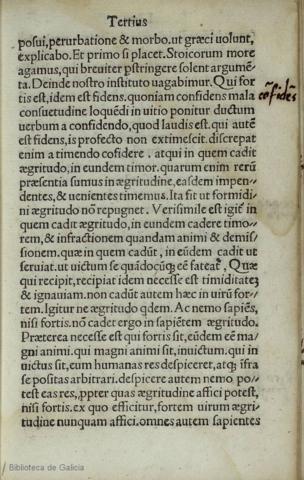 Tertius
posui, perurbatione & morbo. ut græci uolunt,
explicabo. Et primo si placet. Stoicorum more
agamus, qui breuiter pstringere solent argumē-
ta. Deinde nostro instituto uagabimur. Qui for
tis est, idem est fidens. quoniam confidens mala
cōfidēs
consuetudine loquēdi in uitio ponitur ductum
uerbum a confidendo, quod laudis est. qui autē
est fidens, is profecto non extimescit. discrepat
enim a timendo cōfidere. atqui in quem cadit
ægritudo, in eundem timor. quarum enim rerū
præsentia sumus in ægritudine, easdem impen-
dentes, & uenientes timemus. Ita fit ut formidi-
ni ægritudo nō repugnet. Verisimile est igit in
quem cadit ægritudo, in eundem cadere timo-
rem, & infractionem quandam animi & demis/
sionem. quæ in quem cadūt, in eūdem cadit ut
seruiat. ut uictum se quādocūq; eē fateat. Quæ
qui recipit, recipiat idem necesse est timiditatē
& ignauiam. non cadūt autem hæc in uirū for-
tem. Igitur ne ægritudo qdem. Ac nemo sapiēs,
nisi fortis. nō cadet ergo in sapiētem ægritudo.
Præterea necesse est qui fortis sit, eūdem eē ma-
gni animi. qui magni animi sit, inuictum. qui in
uictus sit, eum humanas res despicere, atq; īfra
se positas arbitrari. despicere autem nemo po-
test eas res, ppter quas ægritudine affici potest,
nisi fortis. ex quo efficitur, fortem uirum ægri-
tudine nunquam affici. omnes autem sapientes
Biblioteca de Galicia